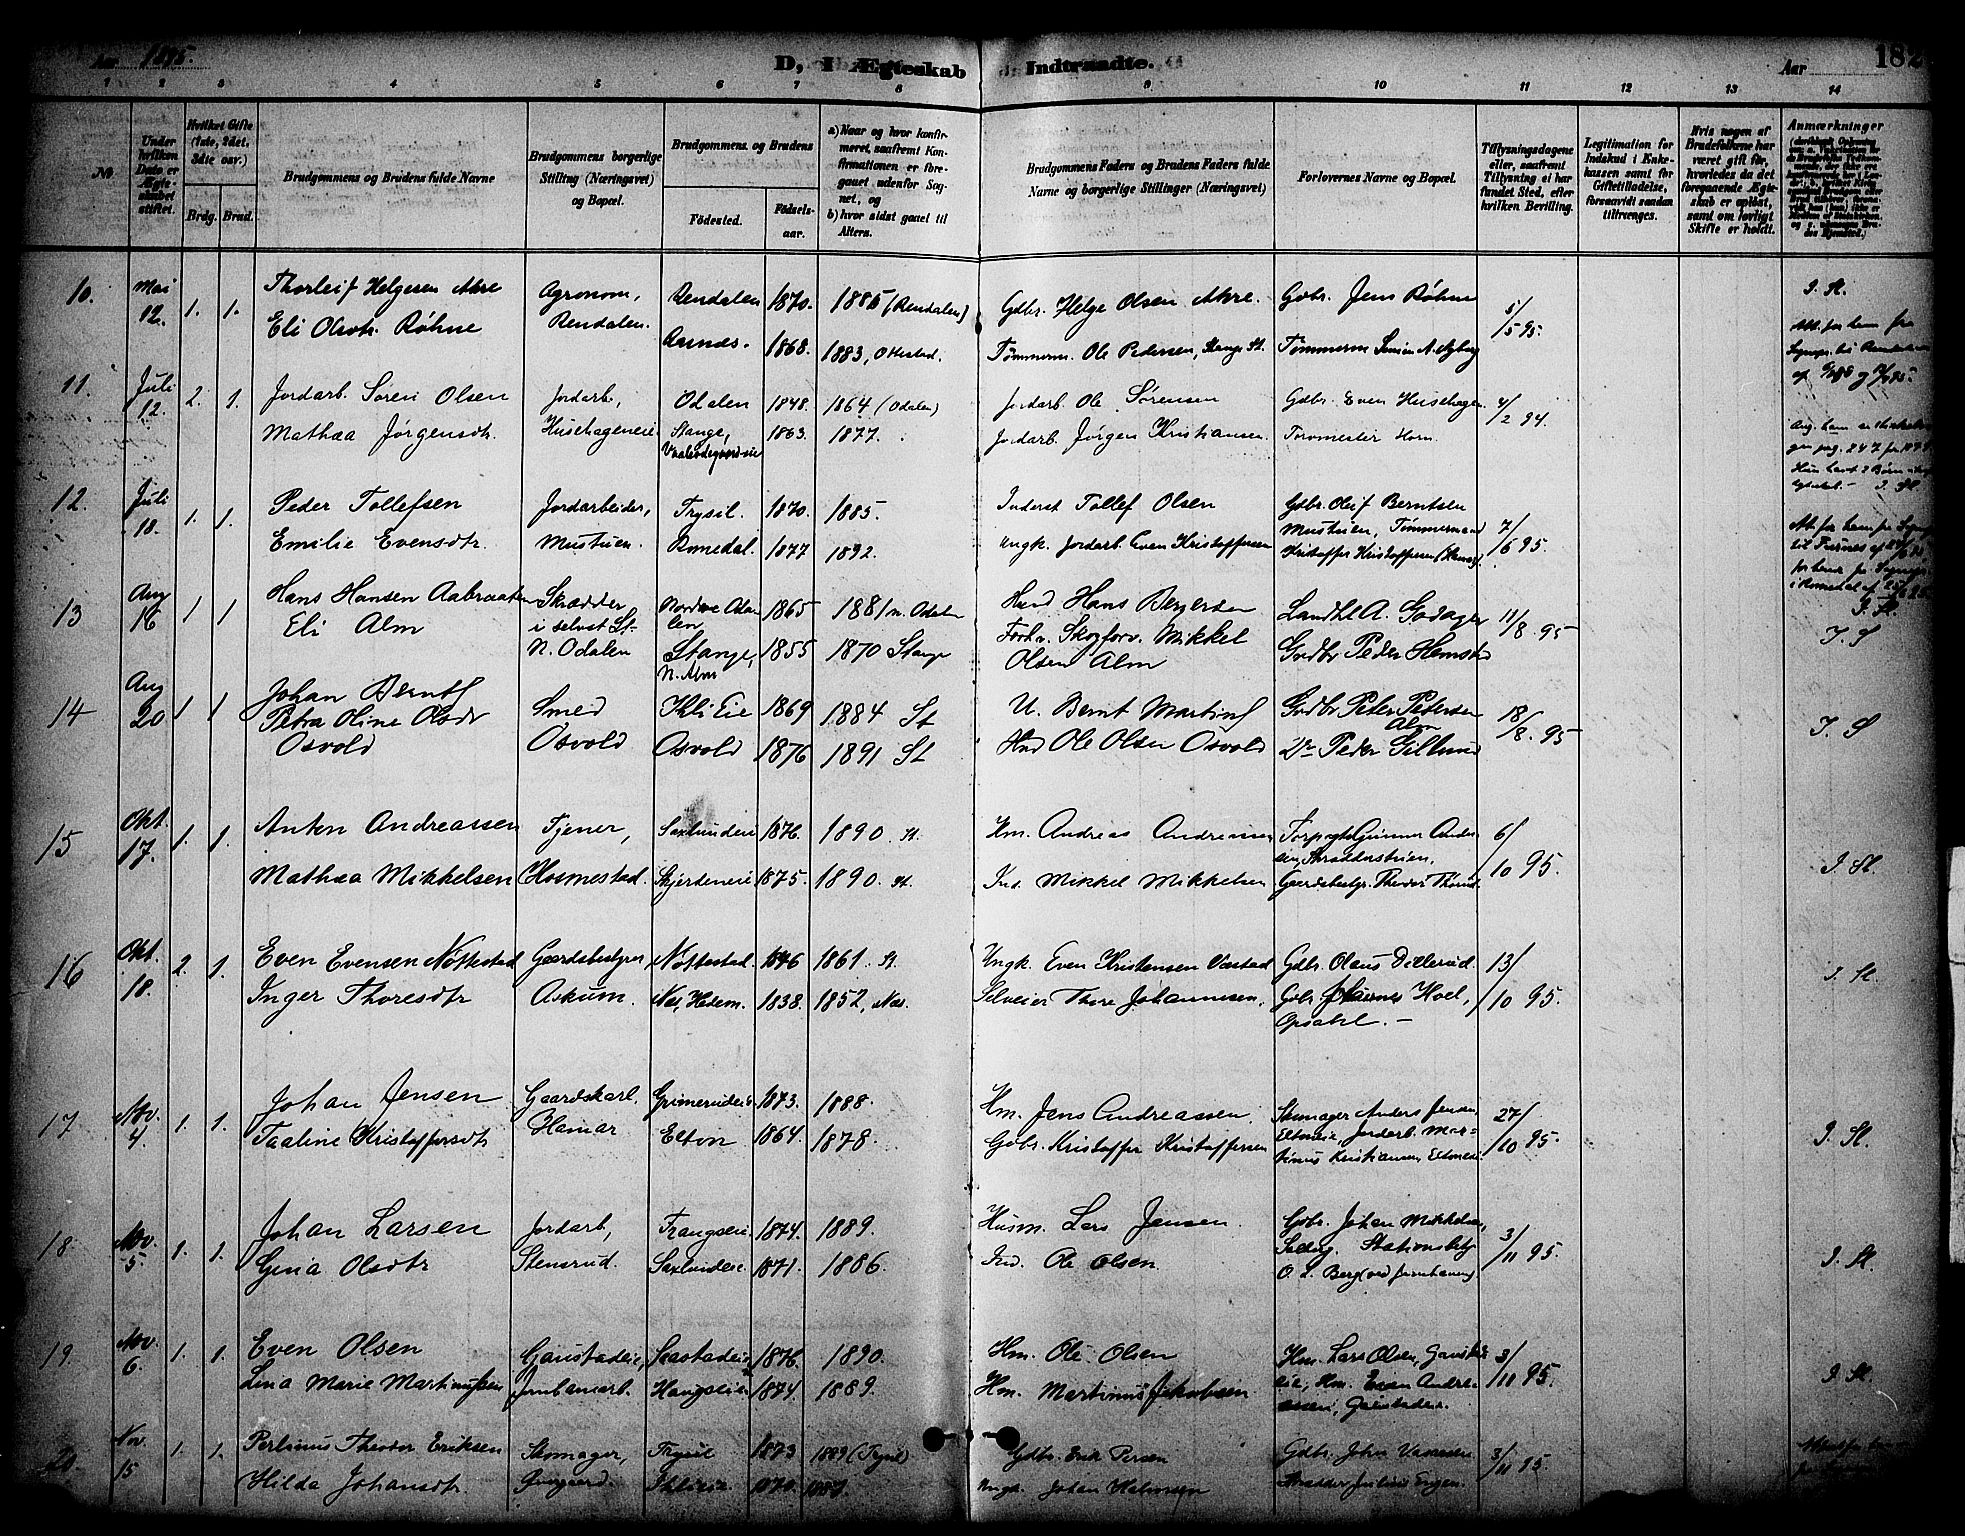 Aar 1895.
D, I Ægteskab Indtraadte.
Aar
182
1 2 3 4 5 6 7 8 9 10 11 12 13 14
№
Under hvilken Dato er Ægteskabet stiftet.
Hvilket Gifte (1ste, 2det, 3die osv.)
Brdg. Brud.
Brudgommens og Brudens fulde Navne
Brudgommens borgerlige Stilling (Næringsvei) og Bopæl.
Brudgommens og Brudens
Födested.
Födselsaar.
a) Naar og hvor konfirmeret, saafremt Konfirmationen er foregaaet udenfor Sognet, og
b) hvor sidst gaaet til Alters.
Brudgommens Faders og Brudens Faders fulde Navne og borgerlige Stillinger (Næringsvei)
Forlovernes Navne og Bopæl.
Tillysningsdagene eller, saafremt Tillysning ei har fundet Sted, efter hvilken Bevilling.
Legitimation for Indskud i Enkekassen samt for Giftetilladelse, forsaavidt saadan tiltrænges.
Hvis nogen af Brudefolkene har været gift för, hvorledes da det foregaaende Ægteskab er oplöst, samt om lovligt Skifte er holdt.
Anmærkninger
10. Mai 12. 1. 1. Thorleif Helgesen Akre Agronom, Rendalen 1870. 1885 (Rendalen) Gdbr. Helge Olsen Akre. Gdbr. Jens Røhne 5/5 95. I. St.
Eli Olsdtr. Røhne Rendalen. Aasnæs. 1868. 1883, Ottestad. Tømmerm. Ole Pedersen, Stange St. Tømmerm Simen A. Nyberg
11. Juli 12. 2. 1. Jordarb. Sören Olsen Jordarb, Odalen 1848. 1864 (Odalen) Jordarb. Ole Sørensen Gdbr. Even Husehagen 4/2 94.
Mathea Jørgensdtr. Husehageneie Stange, 1863. 1877. Jordarb. Jørgen Kristiansen. Toromester Horn.
12. Juli 18. 1. 1. Peder Tollefsen Jordarbeider, Trysil. 1870. 1885. Inderst Tollef Olsen Gdbr. Oluf Berntsen
Emilie Evensdtr. Mustuen. Romedal. 1877 1892. Ungk. Jordarb. Even Kristoffersen Mustuen, Tømmermand Kristoffer Kristoffersen 7/6 95.
13 Aug 16 1 1 Hans Hansen Aabraaten Skrædder Nordre Odalen 1865 1881 N. Odalen Husmd Hans Bergersen Landhl A. Godager 11/8. 95 I. S
Eli Alm i selvst St. N. Odalen Stange, N. Alm 1855 1870 Stange Forhv. Skogforv. Mikkel Olsen Alm Grdbr Peder Hemstad
14 Aug 20 1 1 Johan Berntsen Smed Ihli Eie 1869 1884 St U. Bernt Martins Grdbr Peter Petersen Alm 18/8. 95 I. S
Petra Oline Olsdr Osvold Osvold Osvold 1876 1891 St Hmd Ole Olsen Osvold Do Peder Gillund
15 Okt. 17. 1. 1. Anton Andreassen Tjener, Saxlundeie 1876. 1890. St. Hm. Andreas Andreassen Torpegtr Gunnar Andersen, 6/10 95. I. St.
Mathea Mikkelsen Hosmestad. Skjerdeneie 1875. 1890. St. Ind. Mikkel Mikkelsen Gaardsbestyr. Theodor Thorud
16 Okt. 18. 2. 1. Even Evensen Nøttestad Gaardsbestyrer, Nøttestad. 1846 1861. St. Ungk. Even Kristensen Vaestad Gdbr. Olaus Dillerud. 13/10 95. I. St.
Inger Thoresdtr Askum. Næs, Hedem. 1838. 1852, Næs. Selveier Thore Johannesen, Gdbr. Johannes Hoel, Opsahl. –
17 Nov. 4. 1. 1. Johan Jensen Gaardskarl. Grimerudeie 1873. 1888. Hm. Jens Andreassen. Skomager Anders Jensen 27/10 95. I. St.
Taaline Kristoffersdtr Hamar Elton 1864. 1878. Gdbr. Kristoffer Kristoffersen Eltoneie, Jordarb. Martinus Kristiansen Eltoneie
18 Nov. 5. 1. 1. Johan Larsen Jordarb, Frangseie. 1874. 1889. Husm. Lars Jensen. Gdbr. Johan Mikkelsen, 3/11 95. I. St.
Gina Olsdtr Stensrud. Saxlundeie. 1871. 1886. Ind. Ole Olsen. Solberg. Stationsbetj. O. L. Berg (ved Jernbanen)
19. Nov. 6. 1. 1. Even Olsen Gaustadeie, Saastadeie 1876. 1890. Hm. Ole Olsen Hm. Lars Olsen, Gaustadeie, 3/11 95. I. St.
Lina Marie Martinussen Jernbanarb. Haugseie 1874. 1889. Hm. Martinus Jakobsen Hm. Even Andreassen, Gaustadeie.
20. Nov. 15 1. 1. Perlinus Theodor Eriksen Skomager, Trysil 1873 1889 (Trysil) Gdbr. Erik Persen Gdbr. John 3/11 95.
Hilda Johansdtr. Ihlieie. 1870. Ungk. Johan Halvorsen Skrædder Julius Engen.